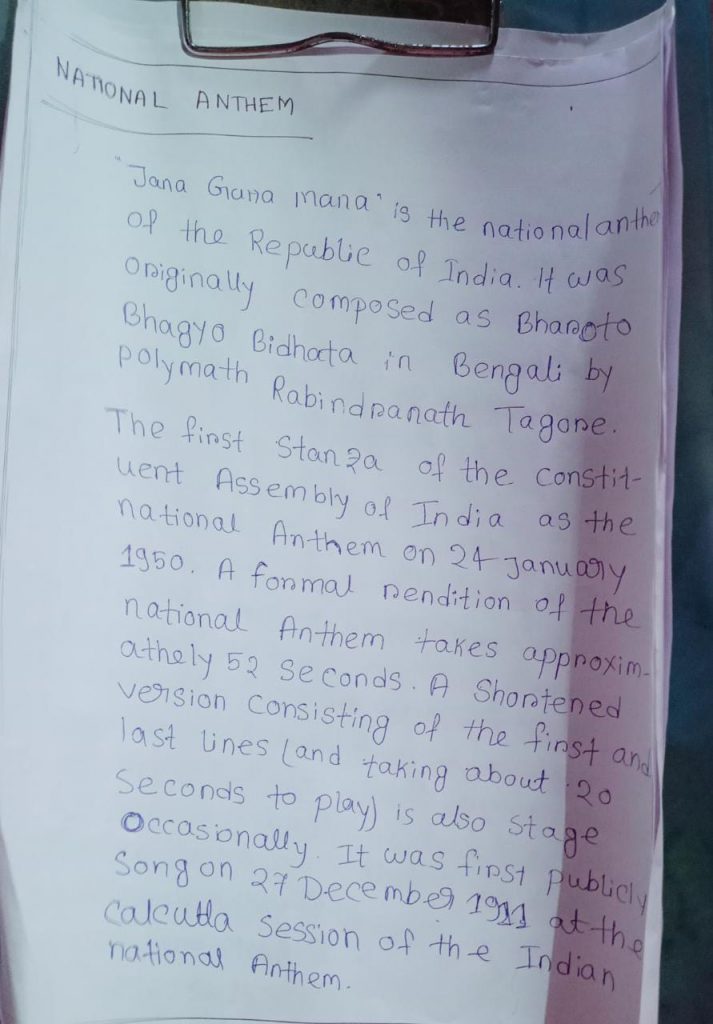 NATIONAL ANTHEM
"Jana Gana mana" is the national anthe
of the Republic of India. It was
originally composed as Bharoto
Bhagyo Bidhata in Bengali by
polymath Rabindranath Tagore.
The first Stanza of the constit-
uent Assembly of India as the
national Anthem on 24 january
1950. A formal rendition of the
national Anthem takes approxim-
athely 52 seconds. A Shortened
version consisting of the first and
last lines (and taking about 20
seconds to play) is also stage
Occasionally. It was first publicly
Song on 27 December 1911 at the
Calcutta session of the Indian
national Anthem.